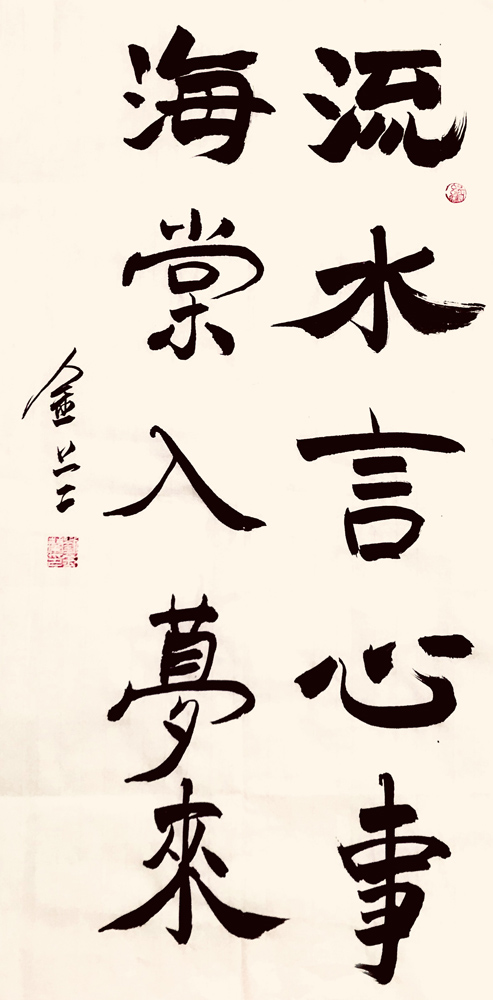 流水言心事
海棠入夢來